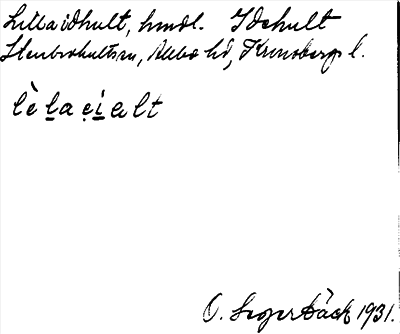 Lilla idhult, hmdl. Idehult
Stenbrohults sn, Allbo hd, Kronobergs l.
lè l̲a ẹi̲ a lt
O. Segerbäck 1931.